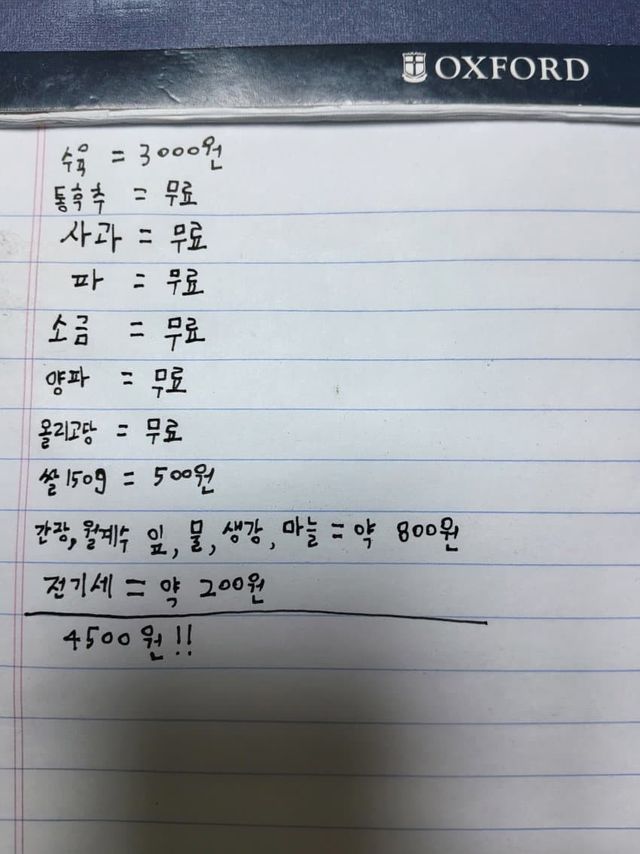 OXFORD
수육 = 3000원
통후추 = 무료
사과 = 무료
파 = 무료
소금 = 무료
양파 = 무료
올리고당 = 무료
쌀150g = 500원
간장, 월계수 잎, 물, 생강, 마늘 = 약 800원
전기세 = 약 200원
4500원!!